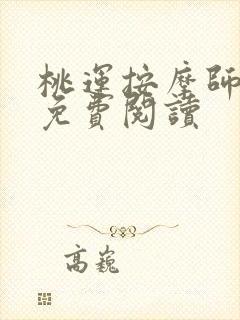 桃運按摩師
免費閱讀
高巍